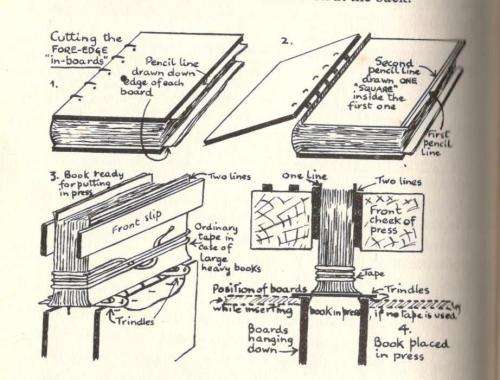 at the back.
Cutting the
FORE-EDGE
"in-boards"
1.
Pencil line
drawn down
edge of each
board
2.
Second
pencil line
drawn ONE
"SQUARE"
inside the
first one
First
pencil
line
3. Book ready
for putting
in press
Two lines
Front slip
Ordinary
tape in
case of
large
heavy books
Trindles
One line
Two lines
Front
cheek of
press
Tape
Trindles
Position of boards
while inserting
book in press
if no tape is used
Boards
hanging
down
4.
Book placed
in press